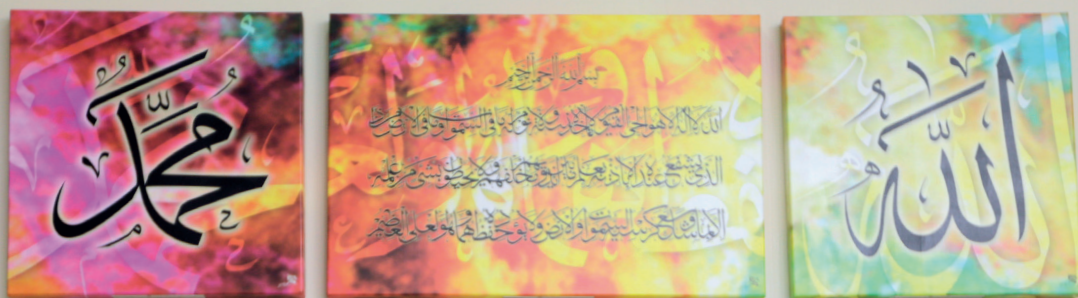 الله
بسم الله الرحمن الرحيم
الله لا إله إلا هو الحي القيوم لا تأخذه سنة ولا نوم له ما في السموات وما في الأرض من ذا
الذي يشفع عنده إلا بإذنه يعلم ما بين أيديهم وما خلفهم ولا يحيطون بشيء من علمه
إلا بما شاء وسع كرسيه السموات والأرض ولا يؤده حفظهما وهو العلي العظيم
محمد